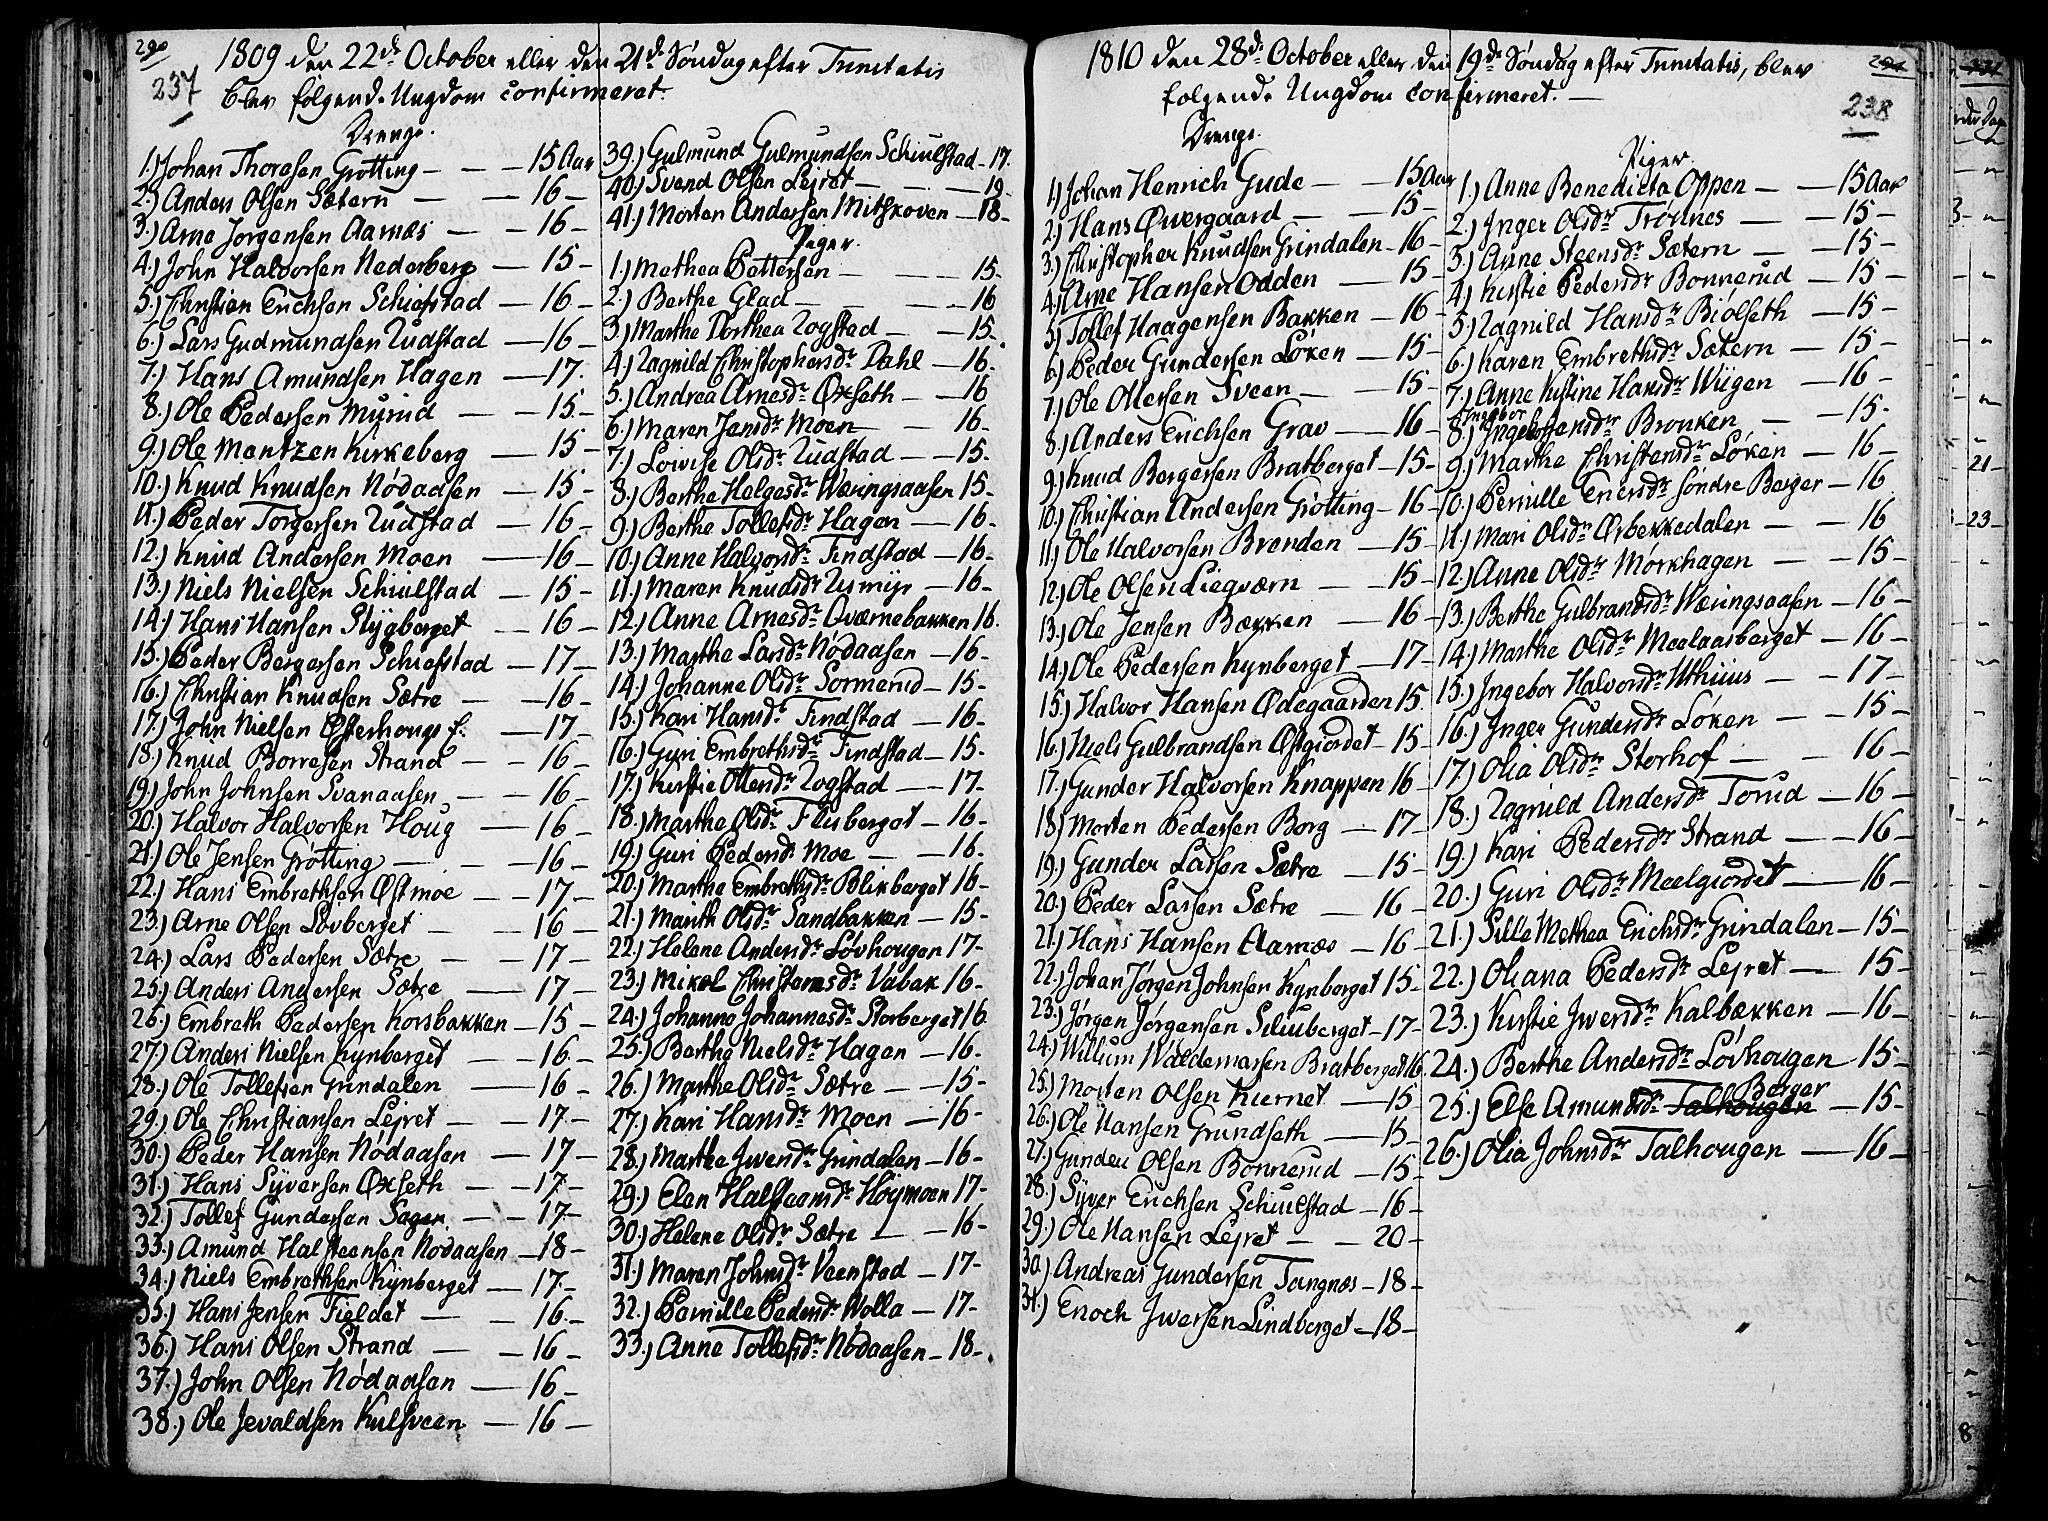 290
237
1809 den 22de October eller den 21de Søndag efter Trinitatis
blev følgende Ungdom confirmeret.
Drenge.
1.) Johan Thoresen Grøtting — — 15 Aar
2.) Anders Olsen Sætern — — 16 —
3.) Arne Jørgensen Aarnæs — — 16 —
4.) John Halvorsen Nederberg — 15 —
5.) Christian Erichsen Schiefstad — 16 —
6.) Lars Gudmundsen Rudstad — 16 —
7.) Hans Amundsen Hagen — 17.
8.) Ole Pedersen Murud — — 15 —
9.) Ole Mentzen Kirkeberg — 15 —
10.) Knud Knudsen Nødaasen — 15 —
11.) Peder Torgersen Rudstad — 16 —
12.) Knud Andersen Moen — 16 —
13.) Niels Nielsen Schiulstad — 15 —
14.) Hans Hansen Stygberget — 16 —
15.) Peder Bergersen Schiefstad — 17 —
16.) Christian Knudsen Sætre — — 16 —
17.) John Nielsen Østerhougs f. — 17 —
18.) Knud Borresen Strand — — 16 —
19.) John Johnsen Svenaasen — — 16 —
20.) Halvor Halvorsen Houg — 16 —
21.) Ole Jensen Grøtting — — 16 —
22.) Hans Embrethsen Østmoe — 17 —
23.) Arne Olsen Lovberget — 16 —
24.) Lars Pedersen Sætre — — 17 —
25.) Anders Andersen Sætre — 17 —
26.) Embreth Pedersen Korsbakken — 15 —
27.) Anders Nielsen Kynberget — — 16 —
28.) Ole Tollefsen Grindalen — 16 —
29.) Ole Christiansen Lejret — — 17 —
30.) Peder Hansen Nødaasen — 17 —
31.) Hans Syversen Øxseth — — 17 —
32.) Tollef Gundersen Sagen — — 17 —
33.) Amund Halsteensen Nodaasen — 18 —
34.) Niels Embrethsen Kynberget — 17 —
35.) Hans Jensen Fieldet — — 16 —
36.) Hans Olsen Strand — — 16 —
37.) John Olsen Nødaasen — 16 —
38.) Ole Jevaldsen Kulsveen — 16 —
39.) Gulmund Gulmundsen Schiulstad — 17.
40.) Svend Olsen Lejret — — — 19 —
41.) Morten Andersen Mitskoven — 18 —
Piger.
1.) Methea Pettersen — — — 15 —
2.) Berthe Glad — — — 16
3.) Marthe Dorthea Rogstad — — 15 —
4.) Ragnild Christophersdr Dahl — 16 —
5.) Andrea Arnesdr Øxseth — — 16
6.) Maren Jensdr Moen — — 16 —
7.) Lowise Olsdr Rudstad — — 15 —
8.) Berthe Helgesdr Væringsaasen 15 —
9.) Berthe Tollefsdr Hagen — 16 —
10.) Anne Halvorsdr Tindstad — 16 —
11.) Maren Knudsdr Rismyr — 16 —
12.) Anne Arnesdr Qværnebakken 16.
13.) Marthe Larsdr Nødaasen — 16 —
14.) Johanne Olsdr Sormerud — 15 —
15.) Kari Hansdr Tindstad — 16 —
16.) Guri Embrethsdr Tindstad — 15 —
17.) Kirstie Ottersdr Rogstad — 17 —
18.) Marthe Olsdr Flisberget — 16 —
19.) Guri Pedersdr Moe — — 16 —
20.) Marthe Embrethsdr Blikberget 16 —
21.) Marith Olsdr Sandbakken — 15 —
22.) Helene Andersdr Lovhougen 17 —
23.) Mikel Christensdr Vabak 16 —
24.) Johanne Johannesdr Storberget 16
25.) Berthe Nielsdr Hagen — 16 —
26.) Marthe Olsdr Sætre — — 15 —
27.) Kari Hansdr Moen — 16 —
28.) Marthe Iwersdr Grindalen — 16 —
29.) Elen Halsteensdr Høymoen 17 —
30.) Helene Olsdr Sætre — — 16 —
31.) Maren Johnsdr Veenstad — 17 —
32.) Pernille Pedersdr Wolla — 17 —
33.) Anne Tollefsdr Nødaasen — 18 —
291
238
1810 den 28de October eller den 19de Søndag efter Trinitatis, blev
følgende Ungdom confirmeret. —
Drenge.
1.) Johan Henrich Gude — — 15 Aar
2.) Hans Øwergaard — — 15 —
3.) Christopher Knudsen Grindalen — 16 —
4.) Arne Hansen Odden — 15 —
5.) Tollef Haagensen Bakken — 16 —
6.) Peder Gundersen Løken — 15 —
7.) Ole Ottersen Sveen — — 15 —
8.) Anders Erichsen Grav — 16 —
9.) Knud Bergersen Bratberget — 15 —
10.) Christian Andersen Grøtting — 16 —
11.) Ole Halvorsen Brenden — 15 —
12.) Ole Olsen Liegværn — 15 —
13.) Ole Jensen Bækken — 16 —
14.) Ole Pedersen Kynberget — 17 —
15.) Halvor Hansen Ødegaarden 15.
16.) Niels Gulbrandsen Østgiordet — 15 —
17.) Gunder Halvorsen Knappen 16 —
18.) Morten Pedersen Borg — 17 —
19.) Gunder Larsen Sætre — 15 —
20.) Peder Larsen Sætre — 16 —
21.) Hans Hansen Aarnæs — 16 —
22.) Johan Jørgen Johnsen Kynberget 15 —
23.) Jørgen Jørgensen Schuberget — 17 —
24.) Willum Waldemarsen Bratberget 16
25.) Morten Olsen Kiernet — 15 —
26.) Ole Hansen Grundseth — 15 —
27.) Gunder Olsen Bonnerud — 15 —
28.) Syver Erichsen Schiulstad — 16 —
29.) Ole Hansen Lejret — — 20 —
30.) Andreas Gundersen Tangnæs — 18 —
31.) Enoch Iwersen Lindberget — 18 —
Piger.
1.) Anne Benedicta Oppen — — 15 Aar
2.) Inger Olsdr Trønnes — — 15 —
3.) Anne Steensdr Sætern — — 15 —
4.) Kirstie Pedersdr Bonnerud — 15 —
5.) Ragnild Hansdr Biolseth — 15 —
6.) Karen Embrethsdr Sætern — 15 —
7.) Anne Kirstine Hansdr Wiigen — 16 —
Ingebor
8.) Jensdr Bronken — — 15 —
9.) Marthe Christensdr Løken — 16 —
10.) Pernille Enersdr søndre Berger — 16
11.) Mari Olsdr Ørbekkedalen — — 16
12.) Anne Olsdr Mørkhagen — 15 —
13.) Berthe Gulbrandsdr Wæringsaasen — 16 —
14.) Marthe Olsdr Meelaasberget — 16 —
15.) Ingebor Halvorsdr Uthuus — — 17 —
16.) Inger Gundersdr Løken — — 15 —
17.) Olia Olsdr Storhof — — 16 —
18.) Ragnild Andersdr Torud — 16 —
19.) Kari Pedersdr Strand — 16 —
20.) Guri Olsdr Meelgiordet — 16 —
21.) Sille Methea Erichsdr Grindalen — 15 —
22.) Oliana Pedersdr Lejret — 15 —
23.) Kirstie Iwersdr Kalbækken — 16 —
24.) Berthe Andersdr Lovhougen 15 —
Berger
25.) Else Amundsdr Talhougen — 15 —
26.) Olia Johnsdr Talhougen — 16 —
21 —
23 —
8